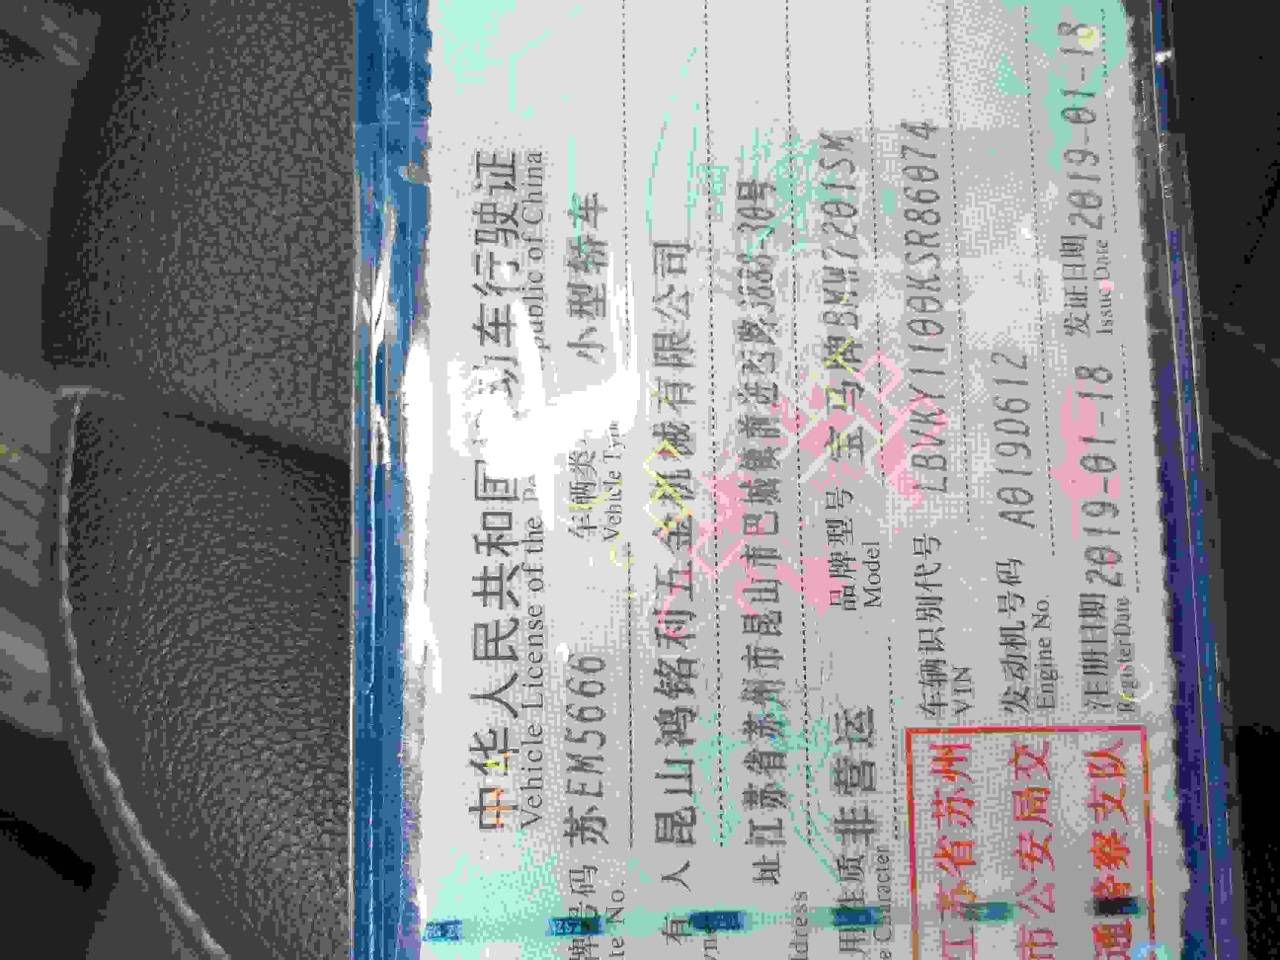 中华人民共和国 动车行驶证
Vehicle License of the P public of China
牌号码 苏EM5666 车辆类 小型轿车
te No. Vehicle Typ
有 人 昆山鸿铭利五金机械有限公司
址 江苏省苏州市昆山市巴城镇前进西路3668-30号
ddress
用性质 非营运 品牌型号 宝马牌BMW7201SM
e Character Model
车辆识别代号 LBVKY1100KSR86074
VIN
发动机号码 A0190612
Engine No.
注册日期 2019-01-18 发证日期 2019-01-18
RegisterDate Issue Date
江苏省苏州
市公安局交
通警察支队